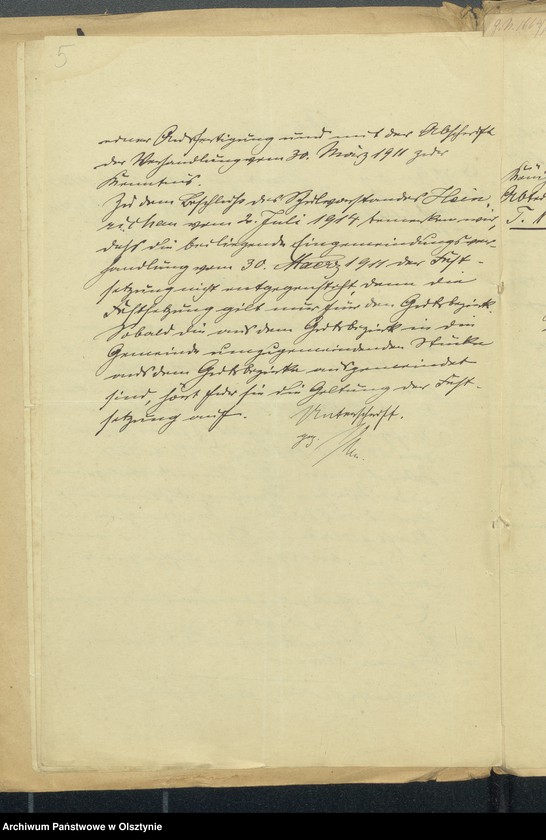 5
einer Ausfertigung und mit der Abschrift
der Verhandlung vom 30. März 1911 zur
Kenntnis.
Zu dem Beschluße des Schulvorstandes Hein-
richau vom 2. Juli 1914 bemerken wir,
daß die beiliegende Eingemeindungsver-
handlung vom 30. Maerz 1911 der Fest-
setzung nicht entgegensteht, denn die
Festsetzung gilt nur für den Gutsbezirk.
Sobald die aus dem Gutsbezirk in die
Gemeinde umzugemeindenden Stücke
aus dem Gutsbezirke ausgemeindet
sind, hört für sie die Geltung der Fest-
setzung auf.
Unterschrift.
gez.
Köni
Abtei
T. N
Archiwum Państwowe w Olsztynie